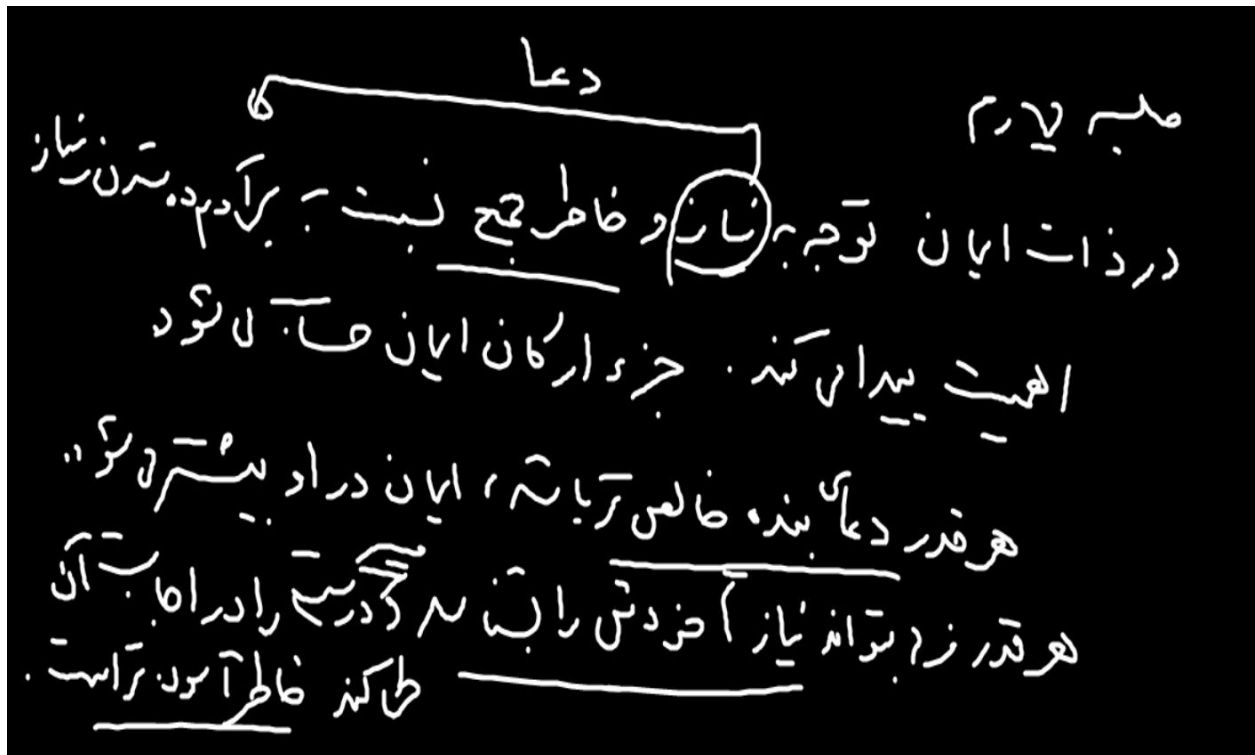 جلسه چهارم
دعا
در ذات ایمان توجه به نیاز و خاطر جمع نسبت به برآورده شدن نیاز
اهمیت پیدا می‌کند. جزء ارکان ایمان حساب می‌شود
هر قدر دعای بنده خالص‌تر باشد، ایمان در او بیشتر می‌شود.
هر قدر فرد بتواند نیاز خودش را بشناسد و درست را در اجابت آن
طی کند خاطر آسوده‌تر است.